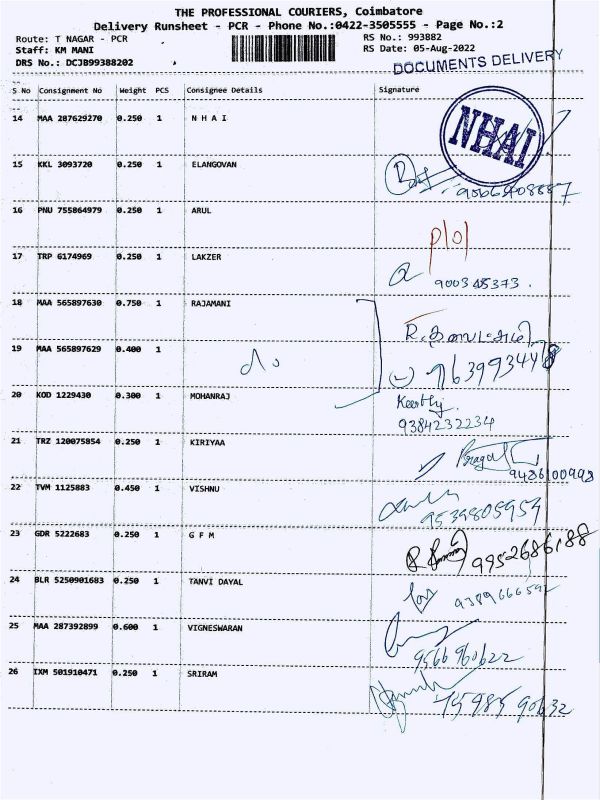 THE PROFESSIONAL COURIERS, Coimbatore
Delivery Runsheet - PCR - Phone No.:0422-3505555 - Page No.:2
Route: T NAGAR - PCR
RS No.: 993882
Staff: KM MANI
RS Date: 05-Aug-2022
DRS No.: DCJB99388202
DOCUMENTS DELIVERY
S No Consignment No Weight PCS Consignee Details Signature
14 MAA 287629270 0.250 1 N H A I
NHAI
15 KKL 3093720 0.250 1 ELANGOVAN
16 PNU 755864979 0.250 1 ARUL
17 TRP 6174969 0.250 1 LAKZER
900345373.
18 MAA 565897630 0.750 1 RAJAMANI
19 MAA 565897629 0.400 1 do
20 KOD 1229430 0.300 1 MOHANRAJ Keerthy.
9384232234
21 TRZ 120075854 0.250 1 KIRIYAA
9486100993
22 TVM 1125883 0.450 1 VISHNU
9539805954
23 GDR 5222683 0.250 1 G F M 9952686188
24 BLR 5250901683 0.250 1 TANVI DAYAL
25 MAA 287392899 0.600 1 VIGNESWARAN
9566960622
26 IXM 501910471 0.250 1 SRIRAM